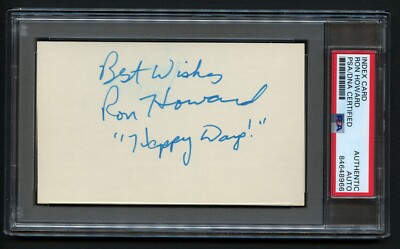 Best Wishes
Ron Howard
"Happy Days!"
INDEX CARD
RON HOWARD
PSA/DNA CERTIFIED
PSA
AUTHENTIC
AUTO
84648966